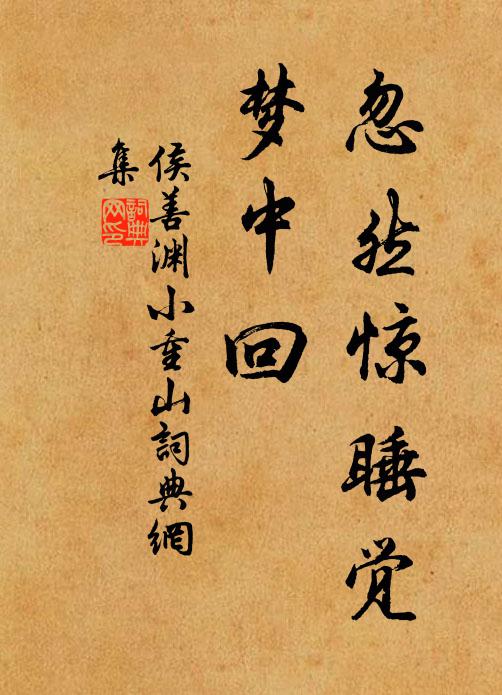 忽然惊睡觉
梦中回
侯善渊小重山詞典網
集
詞典
网印